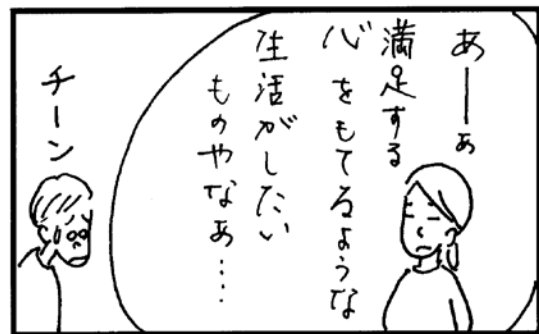 あーぁ
満足する
心をもてるような
生活がしたい
ものやなあ……
チーン